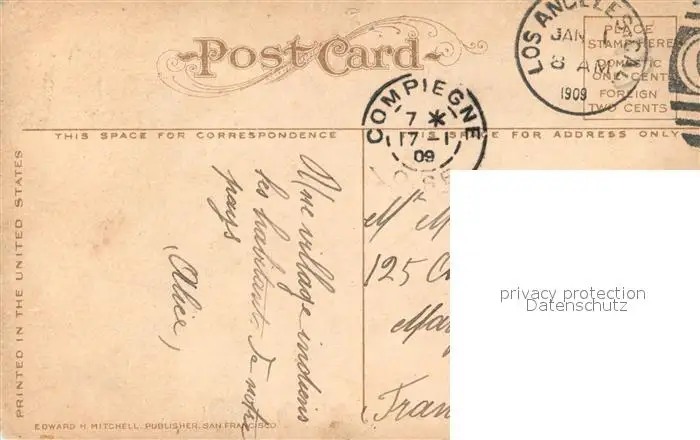 Post Card
PLACE
STAMP HERE
DOMESTIC
ONE CENT
FOREIGN
TWO CENTS
LOS ANGELES, CAL.
JAN 1
8 AM
1909
COMPIEGNE
7 *
17 - 1
09
OISE
THIS SPACE FOR CORRESPONDENCE
THIS SPACE FOR ADDRESS ONLY
PRINTED IN THE UNITED STATES
Une village indiens
les habitants de notre
pays
Alice,
Mr M
125 C
Ma
Fran
privacy protection
Datenschutz
EDWARD H. MITCHELL, PUBLISHER, SAN FRANCISCO